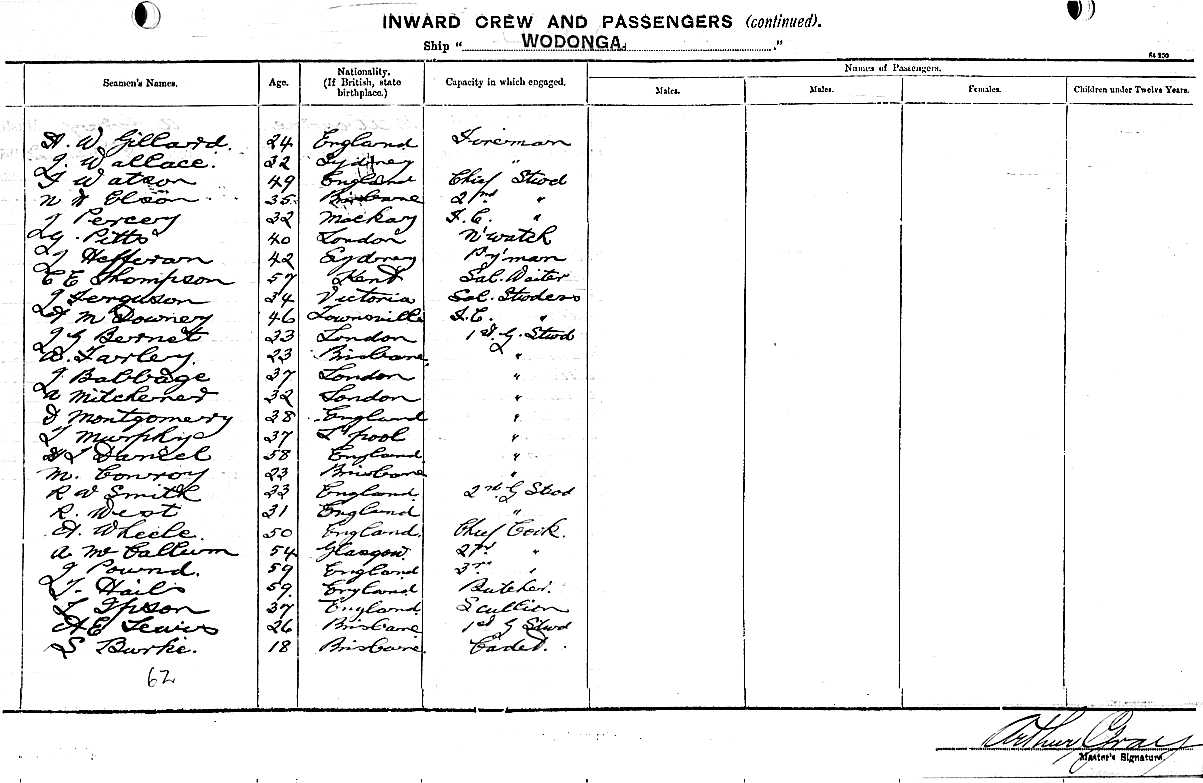 INWARD CREW AND PASSENGERS (continued).
Ship " WODONGA. "
Seamen's Names. Age. Nationality. (If British, state birthplace.) Capacity in which engaged. Names of Passengers.
Males. Males. Females. Children under Twelve Years.
H. W. Gillard. 24 England Fireman
J. Wallace. 32 Sydney "
Watson 49 England Chief Stwd
Elson 35 Brisbane 2nd "
J Percey 32 Mackay F.C. "
G. Pitts 40 London N'watch
J Heffernan 42 Sydney P'y'man
C E Thompson 57 Kent Sal. Waiter
J Ferguson 34 Victoria Sal. Stwdess
M Downey 46 Townsville F.C. "
J G Bernet 33 London 1st G. Stwd
Farley. 23 Brisbane "
J Babbage 37 London "
A Mitchener 32 London "
D Montgomery 38 England "
T Murphy 37 L'pool "
Daniel 58 England "
M. Conroy 23 Brisbane "
R W Smith 33 England 2nd G Stwd
R. West 31 England "
H. Wheele. 50 England. Chief Cook.
A McCallum 54 Glasgow 2nd "
J Pound. 59 England 3rd "
T. Hails 59 England Butcher.
Ipson 37 England Scullion
A E Lewis 26 Brisbane 1st G Stwd
S Burke. 18 Brisbane. Cadet.
62
Arthur Gray
Master's Signature.